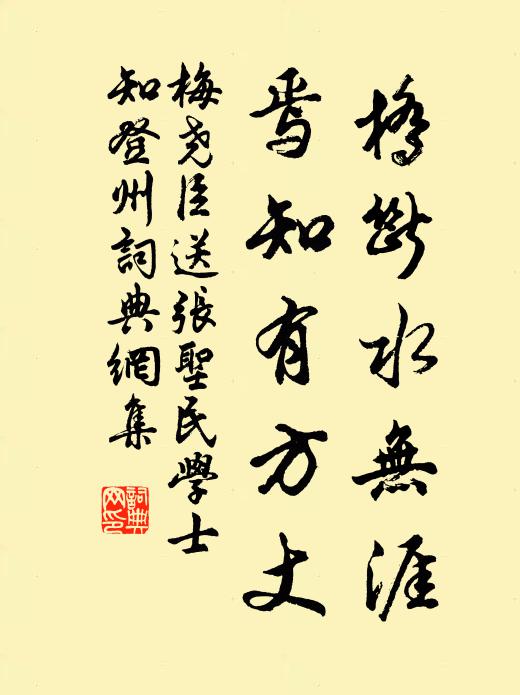 橋斷水無涯
焉知有方丈
梅堯臣送張聖民學士
知登州詞典網集
詞典
网印